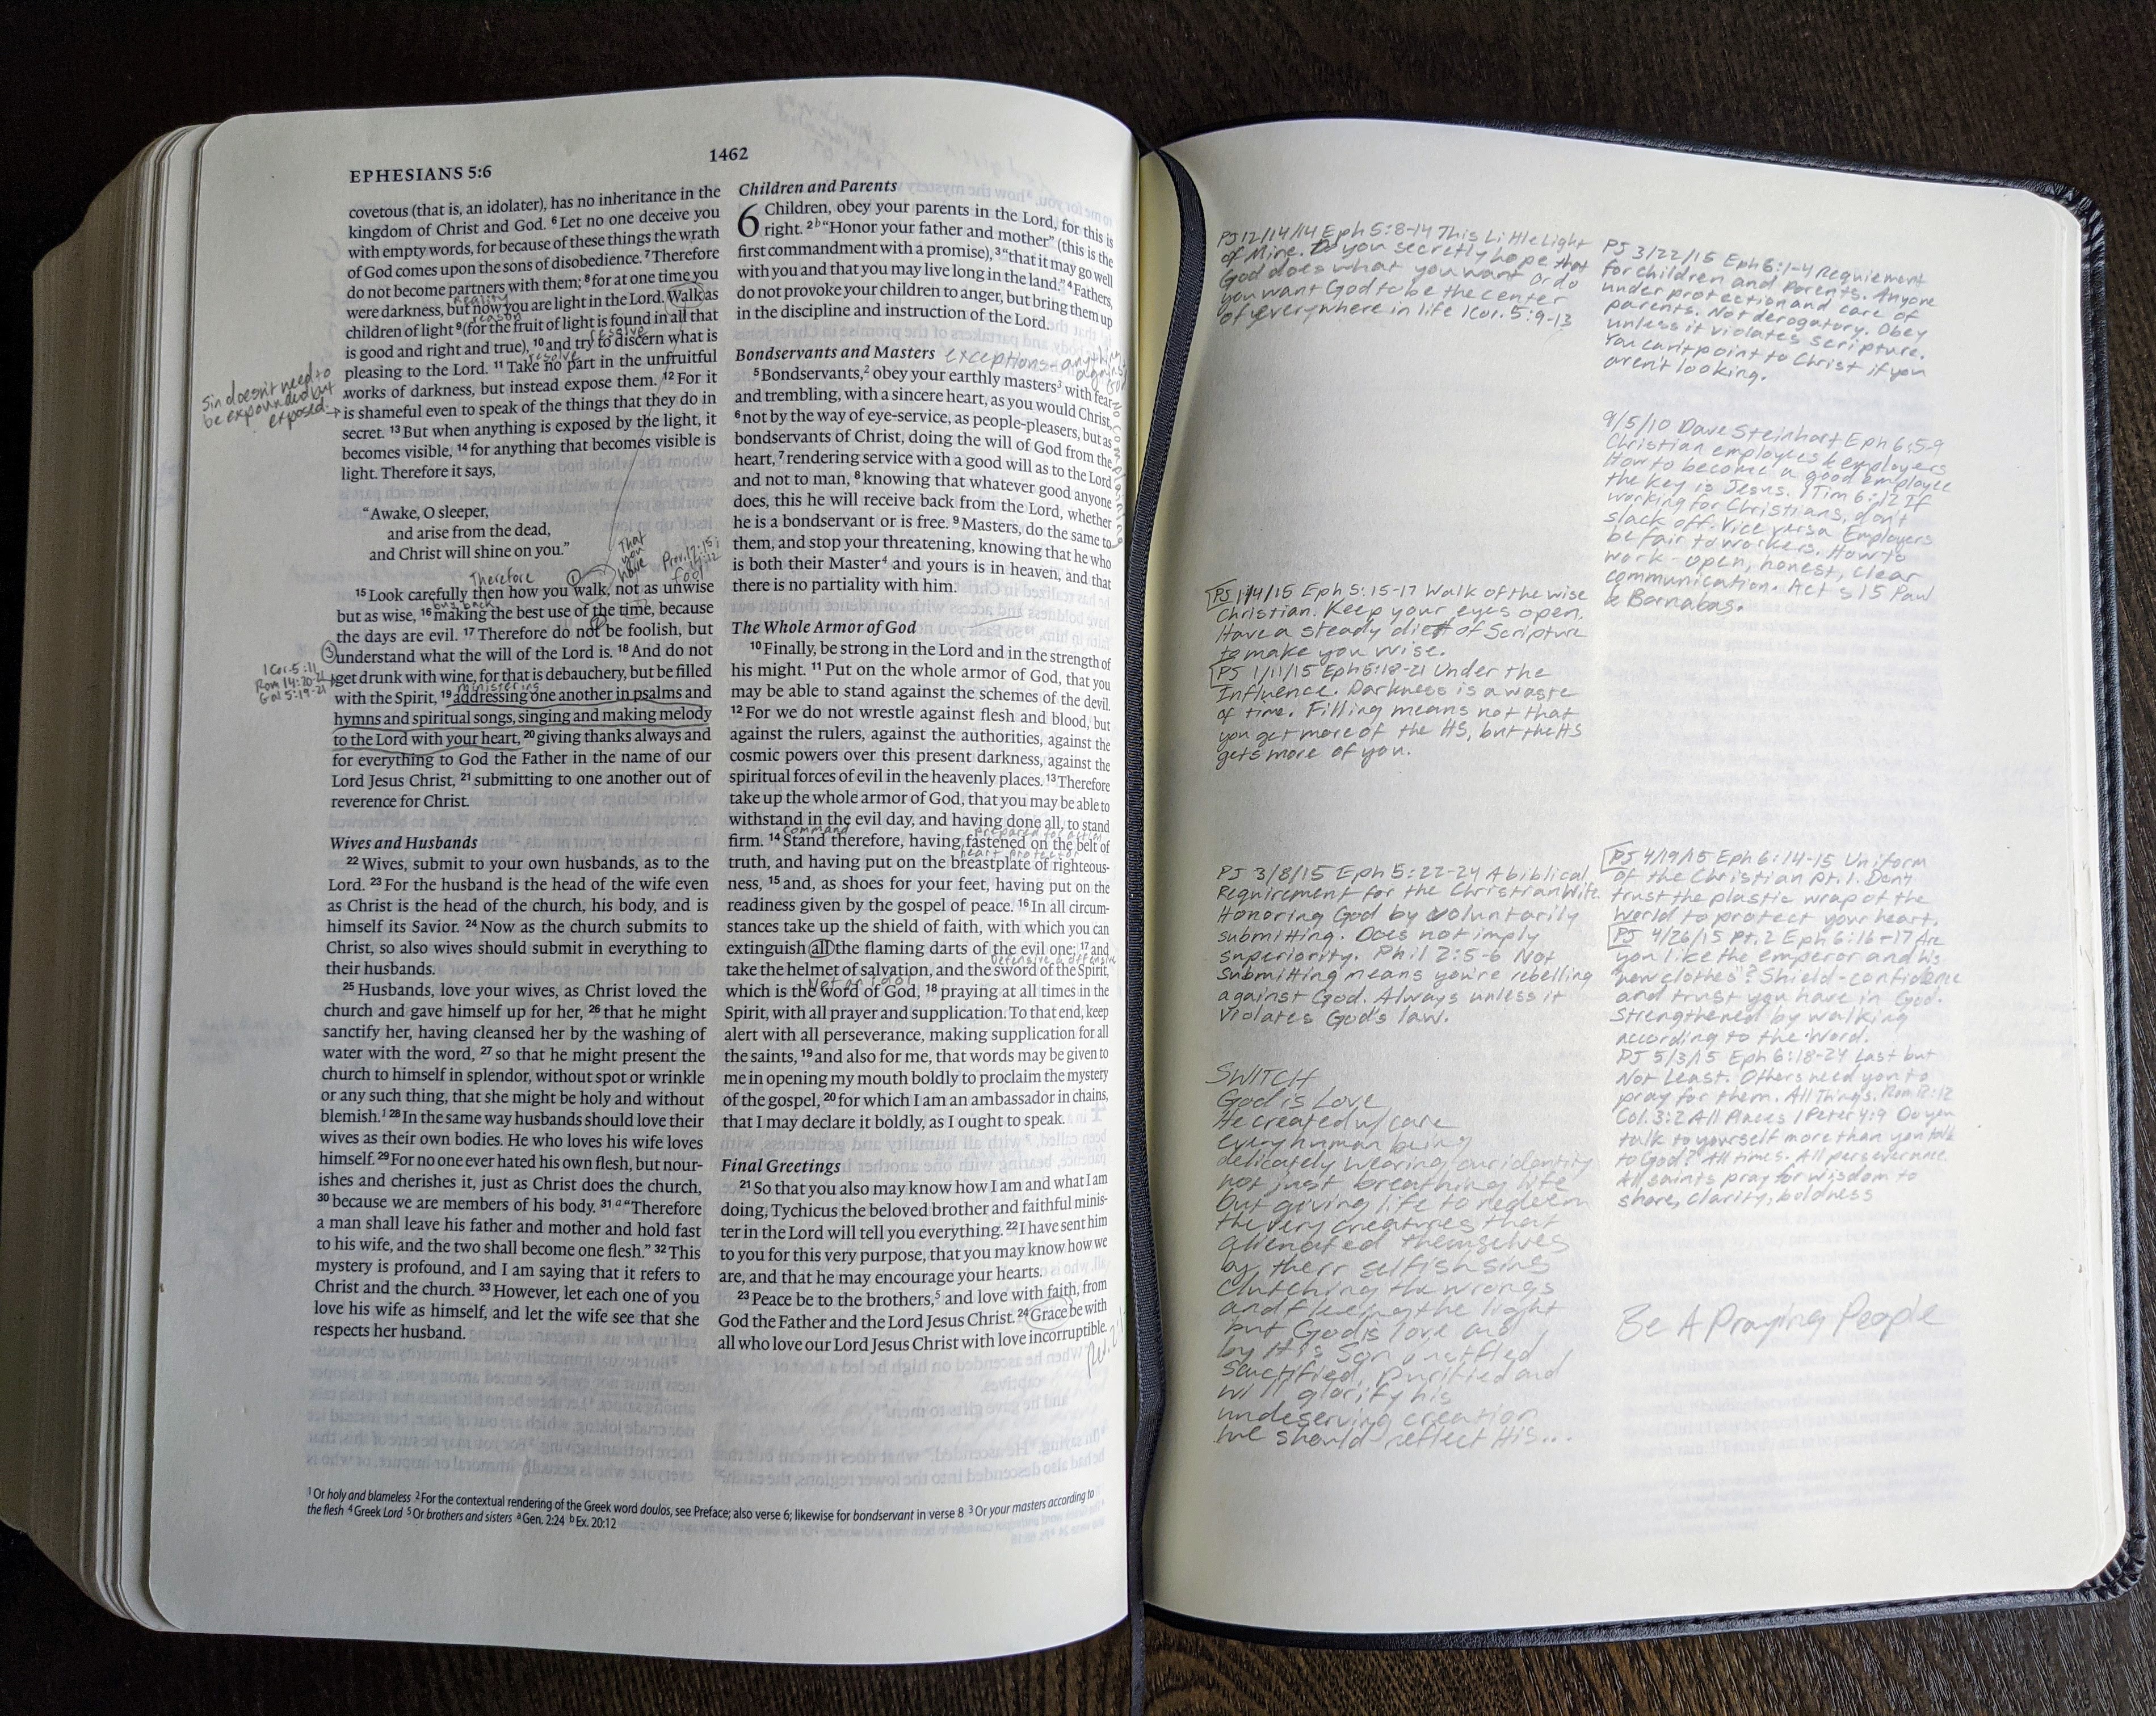 EPHESIANS 5:6
1462
covetous (that is, an idolater), has no inheritance in the
kingdom of Christ and God. 6 Let no one deceive you
with empty words, for because of these things the wrath
of God comes upon the sons of disobedience. 7 Therefore
do not become partners with them; 8 for at one time you
reality
were darkness, but now you are light in the Lord. Walk as
reason
children of light 9 (for the fruit of light is found in all that
resolve
is good and right and true), 10 and try to discern what is
resolve
pleasing to the Lord. 11 Take no part in the unfruitful
works of darkness, but instead expose them. 12 For it
Sin doesn't need to
be expounded but
exposed
is shameful even to speak of the things that they do in
secret. 13 But when anything is exposed by the light, it
becomes visible, 14 for anything that becomes visible is
light. Therefore it says,
"Awake, O sleeper,
and arise from the dead,
and Christ will shine on you."
That
you
have
Prov. 12:15;
fool
Therefore
1
15 Look carefully then how you walk, not as unwise
buy back
but as wise, 16 making the best use of the time, because
2
the days are evil. 17 Therefore do not be foolish, but
3
understand what the will of the Lord is. 18 And do not
1 Cor. 5:11
Rom 14:20-21
Gal 5:19-21
get drunk with wine, for that is debauchery, but be filled
ministering
with the Spirit, 19 addressing one another in psalms and
hymns and spiritual songs, singing and making melody
to the Lord with your heart, 20 giving thanks always and
for everything to God the Father in the name of our
Lord Jesus Christ, 21 submitting to one another out of
reverence for Christ.
Wives and Husbands
22 Wives, submit to your own husbands, as to the
Lord. 23 For the husband is the head of the wife even
as Christ is the head of the church, his body, and is
himself its Savior. 24 Now as the church submits to
Christ, so also wives should submit in everything to
their husbands.
25 Husbands, love your wives, as Christ loved the
church and gave himself up for her, 26 that he might
sanctify her, having cleansed her by the washing of
water with the word, 27 so that he might present the
church to himself in splendor, without spot or wrinkle
or any such thing, that she might be holy and without
blemish.1 28 In the same way husbands should love their
wives as their own bodies. He who loves his wife loves
himself. 29 For no one ever hated his own flesh, but nour-
ishes and cherishes it, just as Christ does the church,
30 because we are members of his body. 31 a "Therefore
a man shall leave his father and mother and hold fast
to his wife, and the two shall become one flesh." 32 This
mystery is profound, and I am saying that it refers to
Christ and the church. 33 However, let each one of you
love his wife as himself, and let the wife see that she
respects her husband.
Children and Parents
6 Children, obey your parents in the Lord, for this is
right. 2 b "Honor your father and mother" (this is the
first commandment with a promise), 3 "that it may go well
with you and that you may live long in the land." 4 Fathers,
do not provoke your children to anger, but bring them up
in the discipline and instruction of the Lord.
Bondservants and Masters
exceptions - anything
against God
No complaining
5 Bondservants,2 obey your earthly masters3 with fear
and trembling, with a sincere heart, as you would Christ,
6 not by the way of eye-service, as people-pleasers, but as
bondservants of Christ, doing the will of God from the
heart, 7 rendering service with a good will as to the Lord
and not to man, 8 knowing that whatever good anyone
does, this he will receive back from the Lord, whether
he is a bondservant or is free. 9 Masters, do the same to
them, and stop your threatening, knowing that he who
is both their Master4 and yours is in heaven, and that
there is no partiality with him.
The Whole Armor of God
10 Finally, be strong in the Lord and in the strength of
his might. 11 Put on the whole armor of God, that you
may be able to stand against the schemes of the devil.
12 For we do not wrestle against flesh and blood, but
against the rulers, against the authorities, against the
cosmic powers over this present darkness, against the
spiritual forces of evil in the heavenly places. 13 Therefore
take up the whole armor of God, that you may be able to
withstand in the evil day, and having done all, to stand
command prepared for action
firm. 14 Stand therefore, having fastened on the belt of
heart protector
truth, and having put on the breastplate of righteous-
ness, 15 and, as shoes for your feet, having put on the
readiness given by the gospel of peace. 16 In all circum-
stances take up the shield of faith, with which you can
extinguish all the flaming darts of the evil one; 17 and
Defensive & offensive
take the helmet of salvation, and the sword of the Spirit,
Not optional
which is the word of God, 18 praying at all times in the
Spirit, with all prayer and supplication. To that end, keep
alert with all perseverance, making supplication for all
the saints, 19 and also for me, that words may be given to
me in opening my mouth boldly to proclaim the mystery
of the gospel, 20 for which I am an ambassador in chains,
that I may declare it boldly, as I ought to speak.
Final Greetings
21 So that you also may know how I am and what I am
doing, Tychicus the beloved brother and faithful minis-
ter in the Lord will tell you everything. 22 I have sent him
to you for this very purpose, that you may know how we
are, and that he may encourage your hearts.
23 Peace be to the brothers,5 and love with faith, from
God the Father and the Lord Jesus Christ. 24 Grace be with
all who love our Lord Jesus Christ with love incorruptible.
1 Or holy and blameless 2 For the contextual rendering of the Greek word doulos, see Preface; also verse 6; likewise for bondservant in verse 8 3 Or your masters according to
the flesh 4 Greek Lord 5 Or brothers and sisters a Gen. 2:24 b Ex. 20:12
PJ 12/14/14 Eph 5:8-14 This Little Light
of Mine. Do you secretly hope that
God does what you want or do
you want God to be the center
of everywhere in life 1 Cor. 5:9-13
PJ 1/4/15 Eph 5:15-17 Walk of the wise
Christian. Keep your eyes open.
Have a steady diet of Scripture
to make you wise.
PJ 1/11/15 Eph 5:18-21 Under the
Influence. Darkness is a waste
of time. Filling means not that
you get more of the HS, but the HS
gets more of you.
PJ 3/8/15 Eph 5:22-24 A biblical
Requirement for the Christian Wife.
Honoring God by voluntarily
submitting. Does not imply
superiority. Phil 2:5-6 Not
submitting means you're rebelling
against God. Always unless it
violates God's law.
SWITCH
God is Love
He created w/ care
every human being
delicately wearing our identity
not just breathing life
but giving life to redeem
the very creatures that
alienated themselves
by their selfish sins
clutching the wrongs
and fleeing the light
but God is love and
by His Son justified
sanctified, purified and
will glorify his
undeserving creation
we should reflect His...
PJ 3/22/15 Eph 6:1-4 Requiement
for children and parents. Anyone
under protection and care of
parents. Not derogatory. Obey
unless it violates scripture.
You can't point to Christ if you
aren't looking.
9/5/10 Dave Steinhart Eph 6:5-9
Christian employees & employers
How to become a good employee
the key is Jesus. 1 Tim 6:12 If
working for Christians, don't
slack off. Vice versa Employers
be fair to workers. How to
work - open, honest, clear
communication. Acts 15 Paul
& Barnabas.
PJ 4/19/15 Eph 6:14-15 Uniform
of the Christian Pt. 1. Don't
trust the plastic wrap of the
world to protect your heart.
PJ 4/26/15 Pt. 2 Eph 6:16-17 Are
you like the emperor and his
"new clothes"? Shield - confidence
and trust you have in God.
Strengthened by walking
according to the Word.
PJ 5/3/15 Eph 6:18-24 Last but
Not Least. Others need you to
pray for them. All Things. Rom 12:12
Col. 3:2 All Places 1 Peter 4:9 Do you
talk to yourself more than you talk
to God? All times. All perseverance
All saints pray for wisdom to
share, clarity, boldness
Be A Praying People